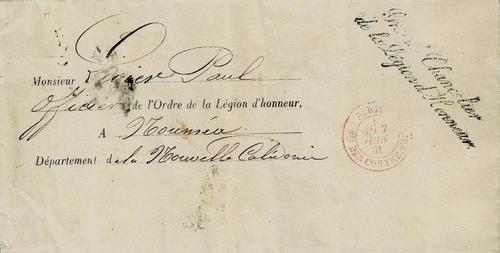 Monsieur Paul
Officier de l'Ordre de la Légion d'honneur,
A Nouméa
Département de la Nouvelle Calédonie
Chancelier
de la Légion d'Honneur.
PARIS
7
JUIN